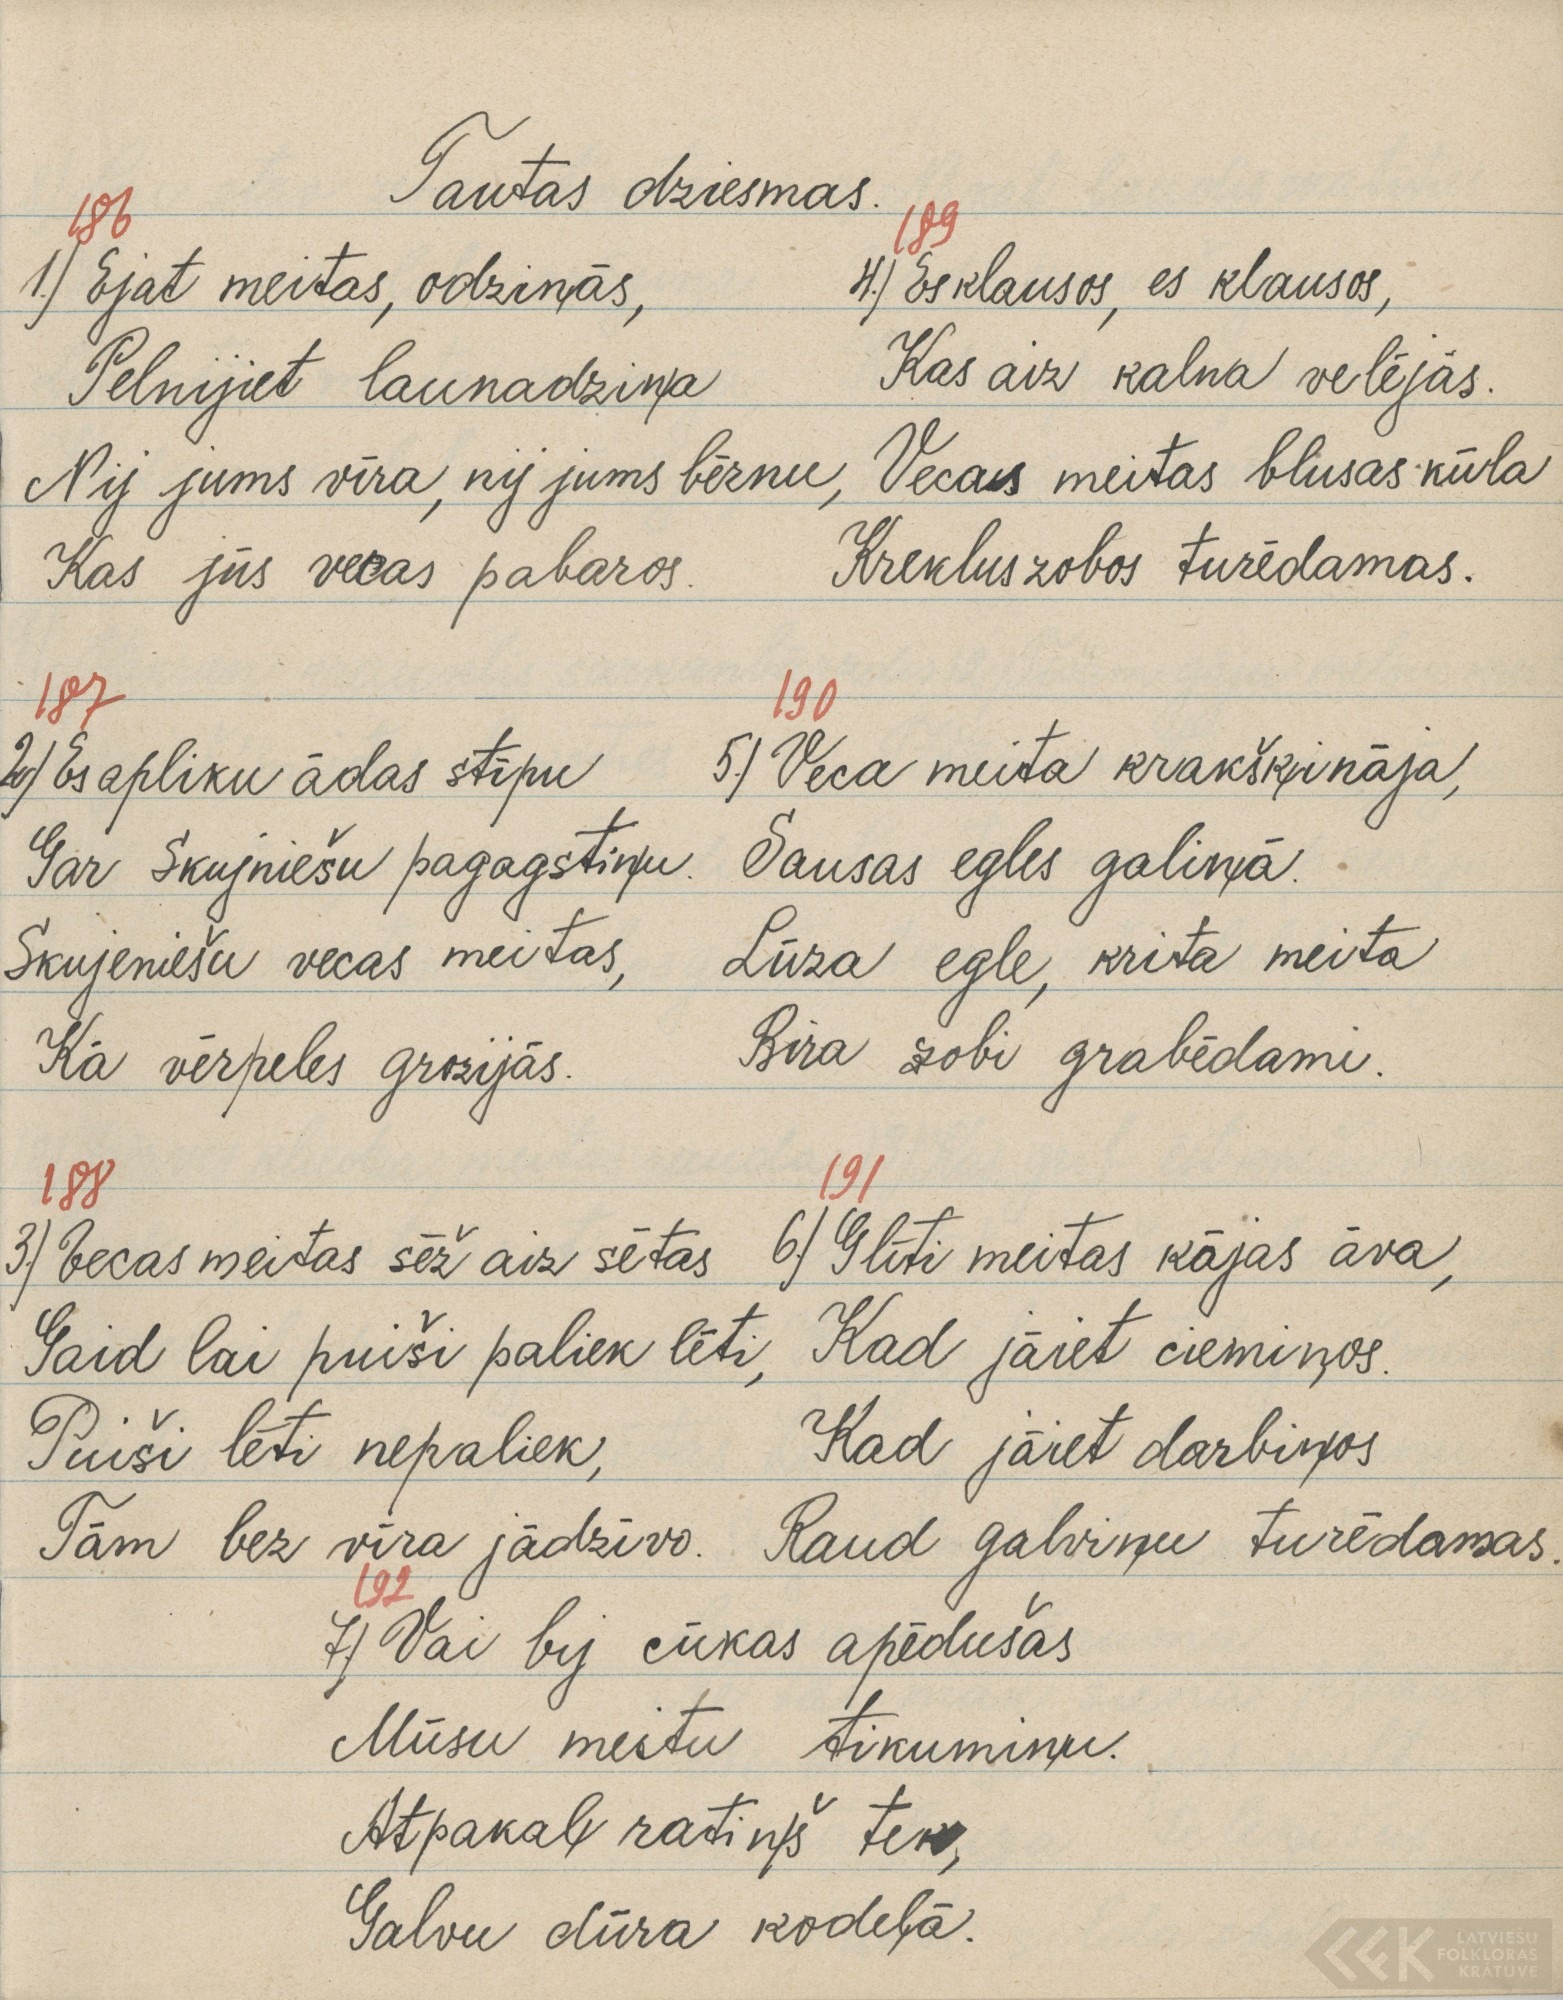 Tautas dziesmas.
186
1.) Ejat meitas, odziņās,
Pelnijiet launadziņa
Nij jums vīra, nij jums bērnu,
Kas jūs vecas pabaros.
187
2.) Es apliku ādas stīpu
Gar Skujniešu pagagstiņu.
Skujeniešu vecas meitas,
Kā vērpeles grozijās.
188
3.) Vecas meitas sēž aiz sētas
Gaid lai puiši paliek lēti,
Puiši lēti nepaliek,
Tām bez vīra jādzīvo.
189
4.) Es klausos, es klausos,
Kas aiz kalna velējās.
Vecas meitas blusas kūla
Kreklus zobos turēdamas.
190
5.) Veca meita krakšķināja,
Sausas egles galiņā.
Lūza egle, krita meita
Bira zobi grabēdami.
191
6.) Glīti meitas kājas āva,
Kad jāiet ciemiņos.
Kad jāiet darbiņos
Raud galviņu turēdamas.
192
7.) Vai bij cūkas apēdušas
Mūsu meitu tikumiņu.
Atpakaļ ratiņš tek,
Galvu dūra kodeļā.
LATVIEŠU
FOLKLORAS
KRĀTUVE